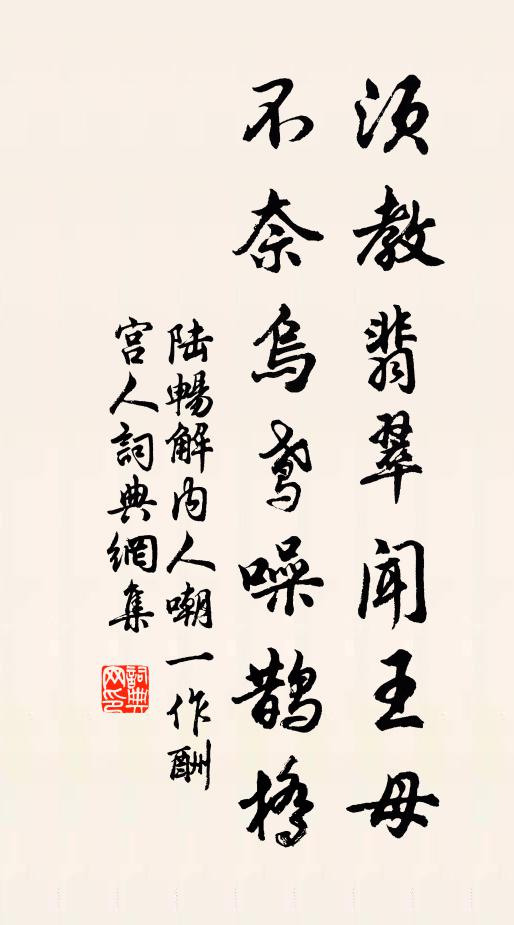 须教翡翠闻王母
不奈乌鸢噪鹊桥
陆畅解内人嘲一作酬
宫人词典网集
词典网印